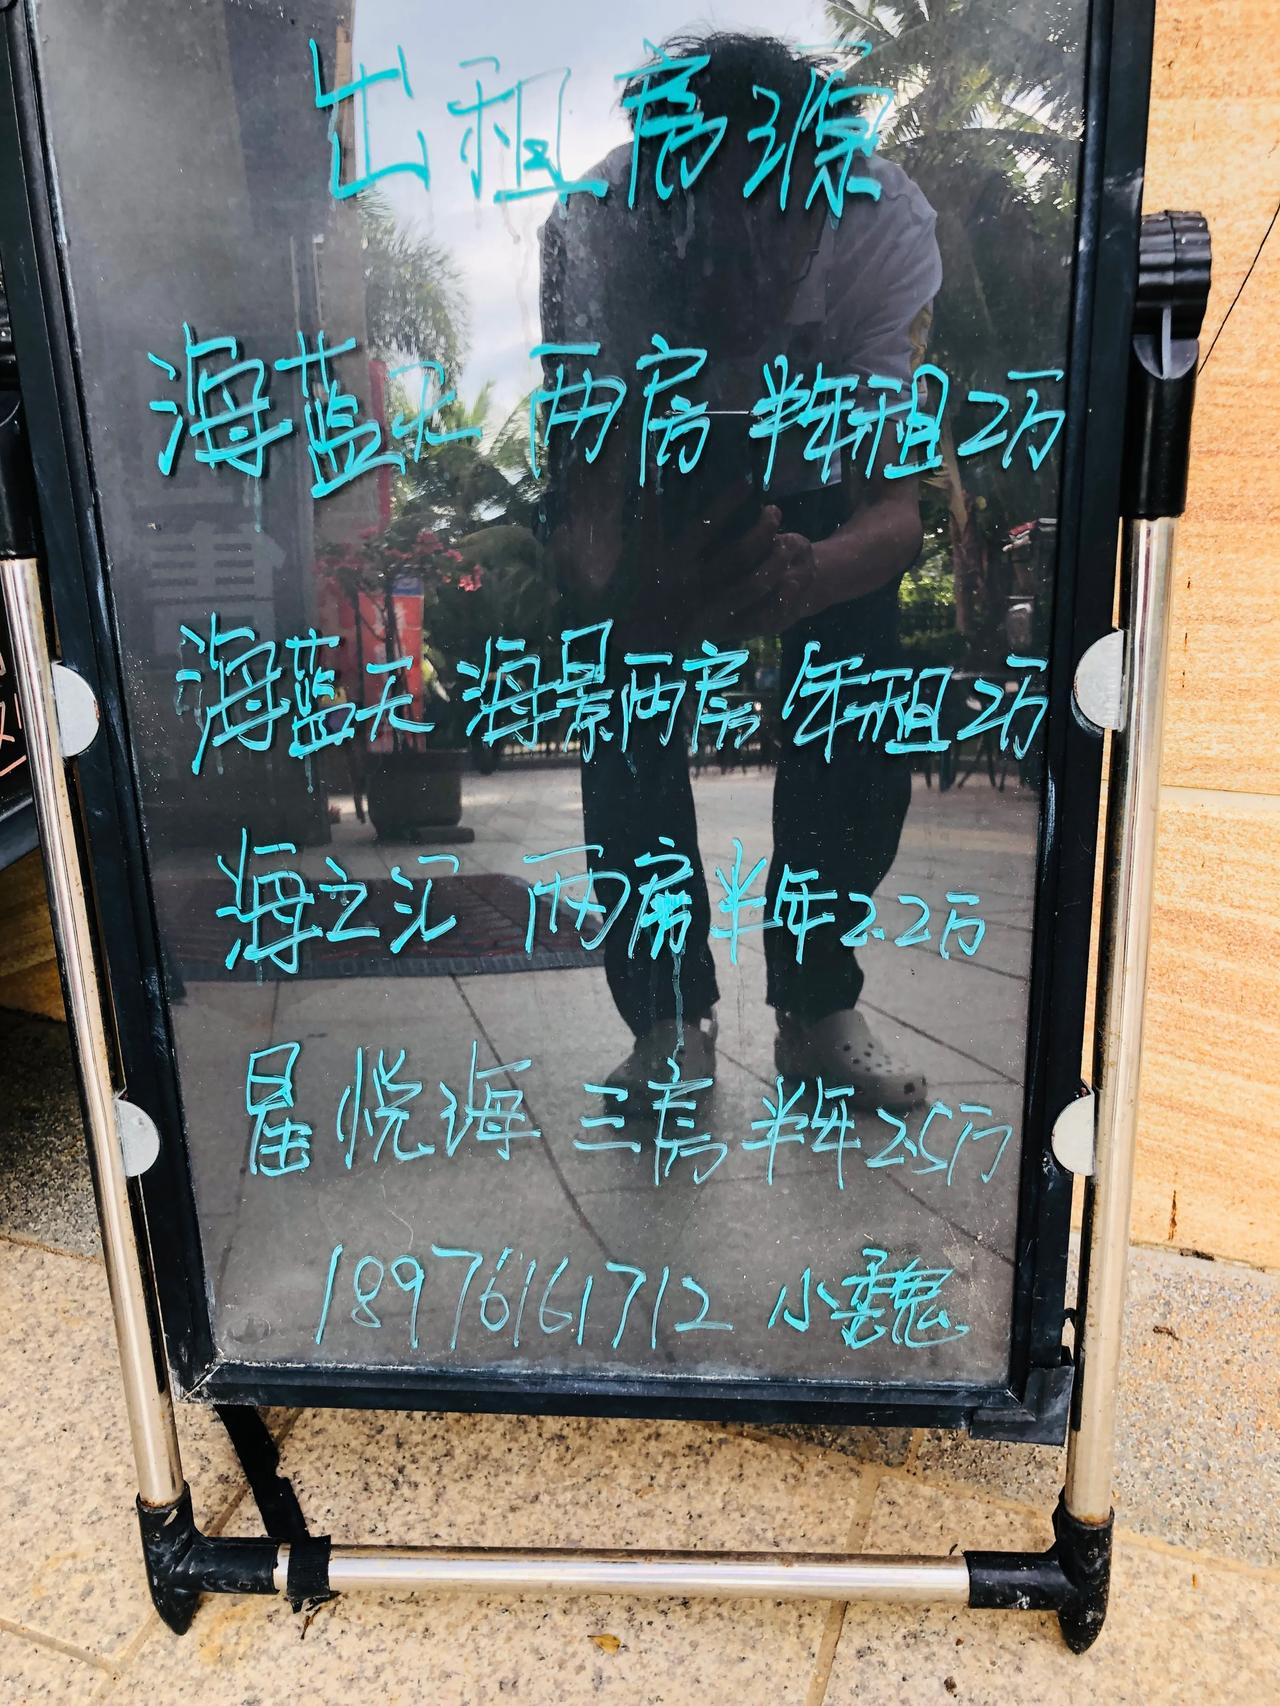 出租房源
海蓝天 两房 半年租2万
海蓝天 海景两房 年租2万
海之汇 两房半年2.2万
星悦海 三房 半年2.5万
18976161712 小魏